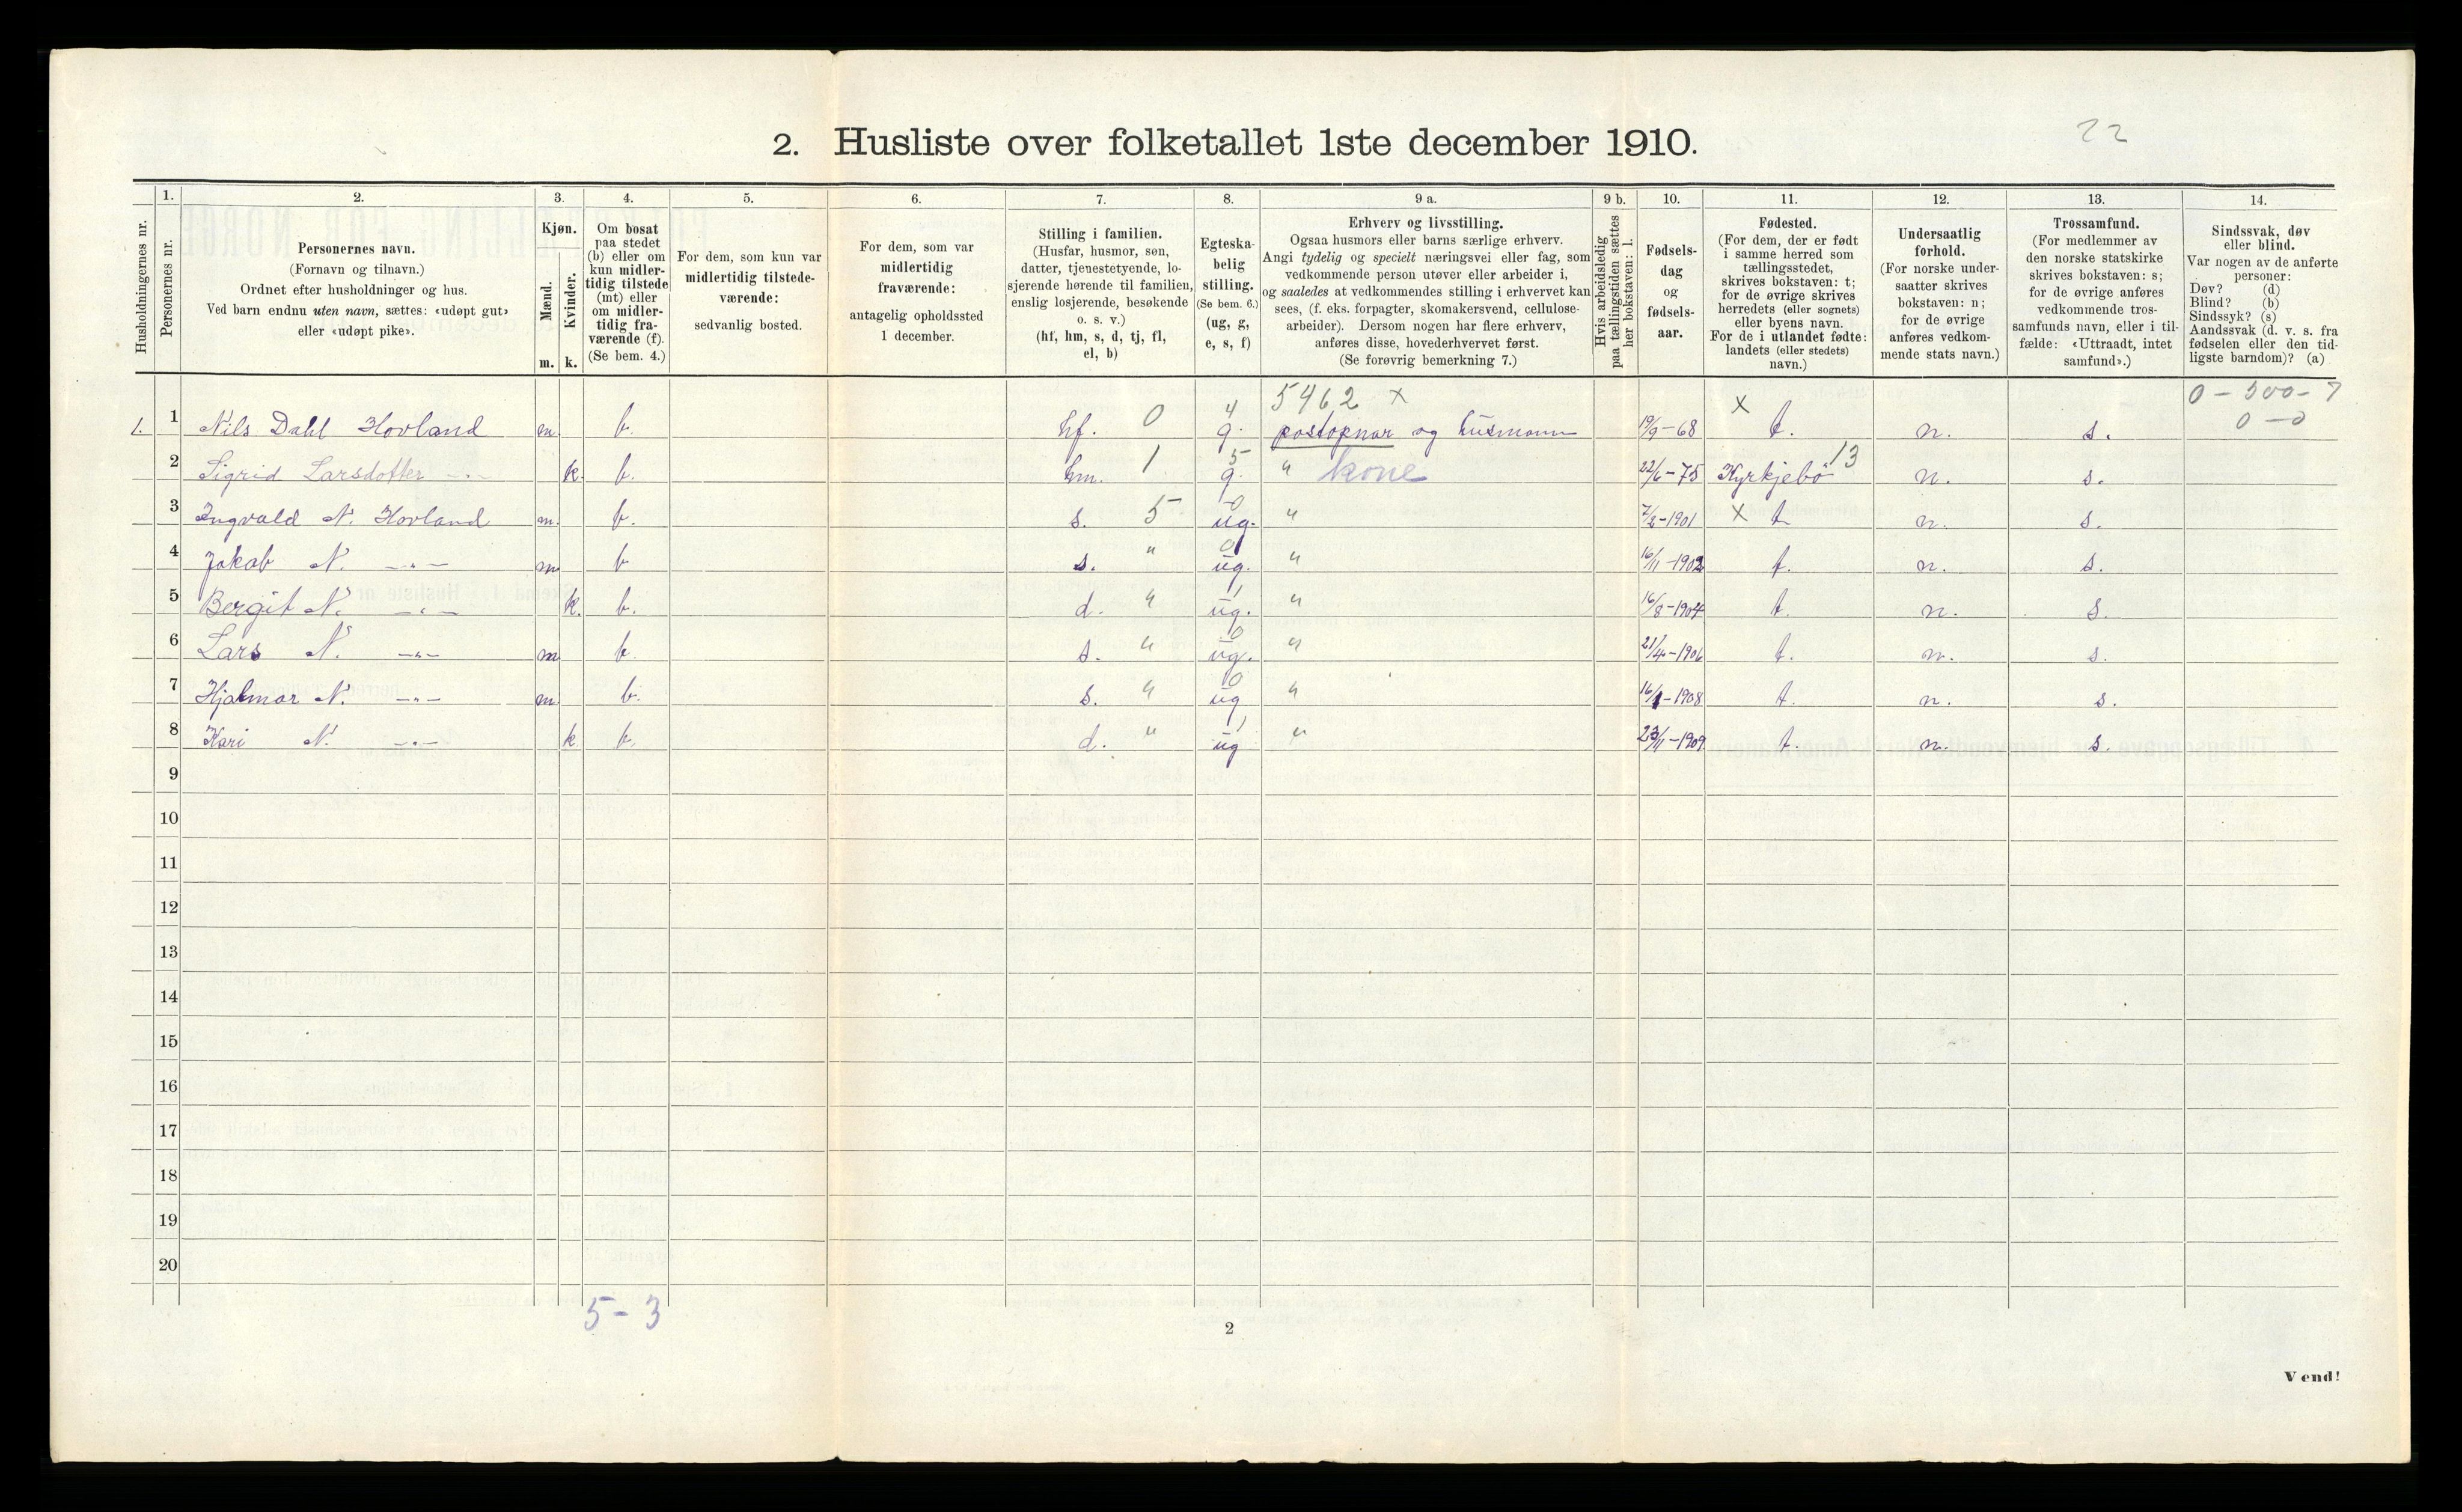 22
2. Husliste over folketallet 1ste december 1910.
Husholdningernes nr.
1. Personernes nr.
2. Personernes navn. (Fornavn og tilnavn.) Ordnet efter husholdninger og hus. Ved barn endnu uten navn, sættes: «udøpt gut» eller «udøpt pike».
3. Kjøn. Mænd. m. Kvinder. k.
4. Om bosat paa stedet (b) eller om kun midlertidig tilstede (mt) eller om midlertidig fraværende (f). (Se bem. 4.)
5. For dem, som kun var midlertidig tilstedeværende: sedvanlig bosted.
6. For dem, som var midlertidig fraværende: antagelig opholdssted 1 december.
7. Stilling i familien. (Husfar, husmor, søn, datter, tjenestetyende, losjerende hørende til familien, enslig losjerende, besøkende o. s. v.) (hf, hm, s, d, tj, fl, el, b)
8. Egteskabelig stilling. (Se bem. 6.) (ug, g, e, s, f)
9 a. Erhverv og livsstilling. Ogsaa husmors eller barns særlige erhverv. Angi tydelig og specielt næringsvei eller fag, som vedkommende person utøver eller arbeider i, og saaledes at vedkommendes stilling i erhvervet kan sees, (f. eks. forpagter, skomakersvend, cellulosearbeider). Dersom nogen har flere erhverv, anføres disse, hovederhvervet først. (Se forøvrig bemerkning 7.)
9 b. Hvis arbeidsledig paa tællingstiden sættes her bokstaven: l.
10. Fødselsdag og fødselsaar.
11. Fødested. (For dem, der er født i samme herred som tællingsstedet, skrives bokstaven: t; for de øvrige skrives herredets (eller sognets) eller byens navn. For de i utlandet fødte: landets (eller stedets) navn.)
12. Undersaatlig forhold. (For norske undersaatter skrives bokstaven: n; for de øvrige anføres vedkommende stats navn.)
13. Trossamfund. (For medlemmer av den norske statskirke skrives bokstaven: s; for de øvrige anføres vedkommende trossamfunds navn, eller i tilfælde: «Uttraadt, intet samfund».)
14. Sindssvak, døv eller blind. Var nogen av de anførte personer: Døv? (d) Blind? (b) Sindssyk? (s) Aandssvak (d. v. s. fra fødselen eller den tidligste barndom)? (a)
5462 x x 0-300-7
1. 1 Nils Dahl Hovland m. b. hf. 0 4 g. postopnar og husmann 19/9-68 t. n. s. 0-0
2 Sigrid Larsdotter -"- k. b. hm. 1 5 g. " kone 22/6-75 Kyrkjebö 13 n. s.
3 Ingvald N. Hovland m. b. s. 5 0 ug. " 7/2-1901 x t n. s.
4 Jakob N. -"- m. b s. " 0 ug. " 16/11-1902 t. n. s.
5 Bergit N. -"- k. b. d. " 1 ug. " 16/8-1904 t. n. s.
6 Lars N. -"- m b. s. " 0 ug. " 21/4-1906 t. n. s.
7 Hjalmar N. -"- m. b. s. " 0 ug " 16/1-1908 t. n. s.
8 Kari N. -"- k b. d. " 1 ug " 23/11-1909 t. n. s.
9
10
11
12
13
14
15
16
17
18
19
20
5-3
2
Vend!